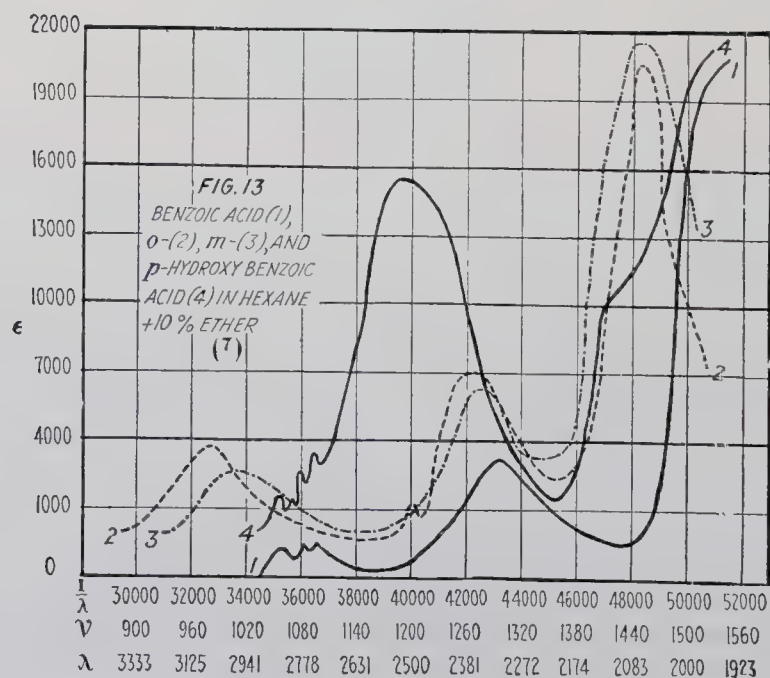 22000
19000
16000
13000
10000
7000
4000
1000
0
ε
FIG. 13
BENZOIC ACID (1),
o-(2), m-(3), AND
p-HYDROXY BENZOIC
ACID (4) IN HEXANE
+10% ETHER
(7)
4
1
3
2
2
3
4
1
1/λ 30000 32000 34000 36000 38000 40000 42000 44000 46000 48000 50000 52000
ν 900 960 1020 1080 1140 1200 1260 1320 1380 1440 1500 1560
λ 3333 3125 2941 2778 2631 2500 2381 2272 2174 2083 2000 1923